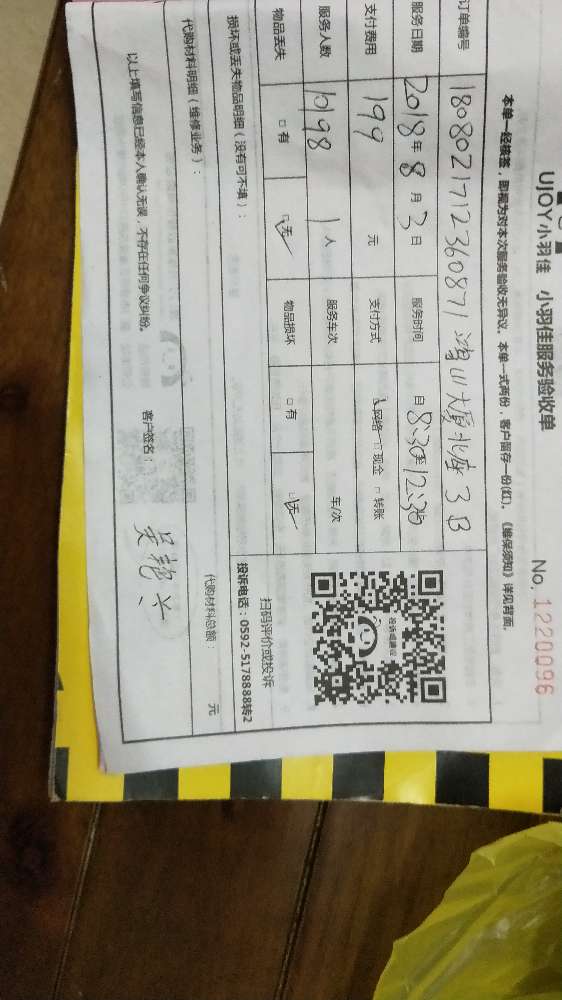 UJOY小羽佳 小羽佳服务验收单
No. 1220096
本单一经核签，即视为对本次服务验收无异议。本单一式两份，客户留存一份(红)。《维保须知》详见背面。
订单编号 1808021712360871 鸿山大厦北座 3B
服务日期 2018年 8月 3日 服务时间 自8:30至12:30
支付费用 199 元 支付方式 ☑网络 □现金 □转账
服务人数 10198 1人 服务车次 车/次
物品丢失 □有 ☑无 物品损坏 □有 ☑无
扫码评价或投诉
投诉电话：0592-5178888转2
投诉或建议
损坏或丢失物品明细（没有可不填）：
代购材料明细（维修业务）： 代购材料总额： 元
以上填写信息已经本人确认无误，不存在任何争议纠纷。 客户签名：